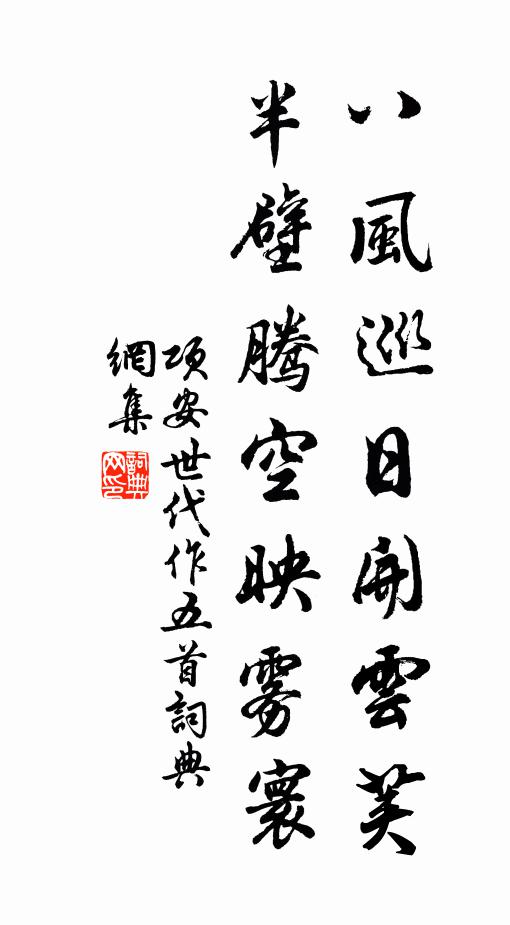 八風巡日開雲笑
半壁騰空映霧寰
項安世代作五首詞典
網集
詞典
网印